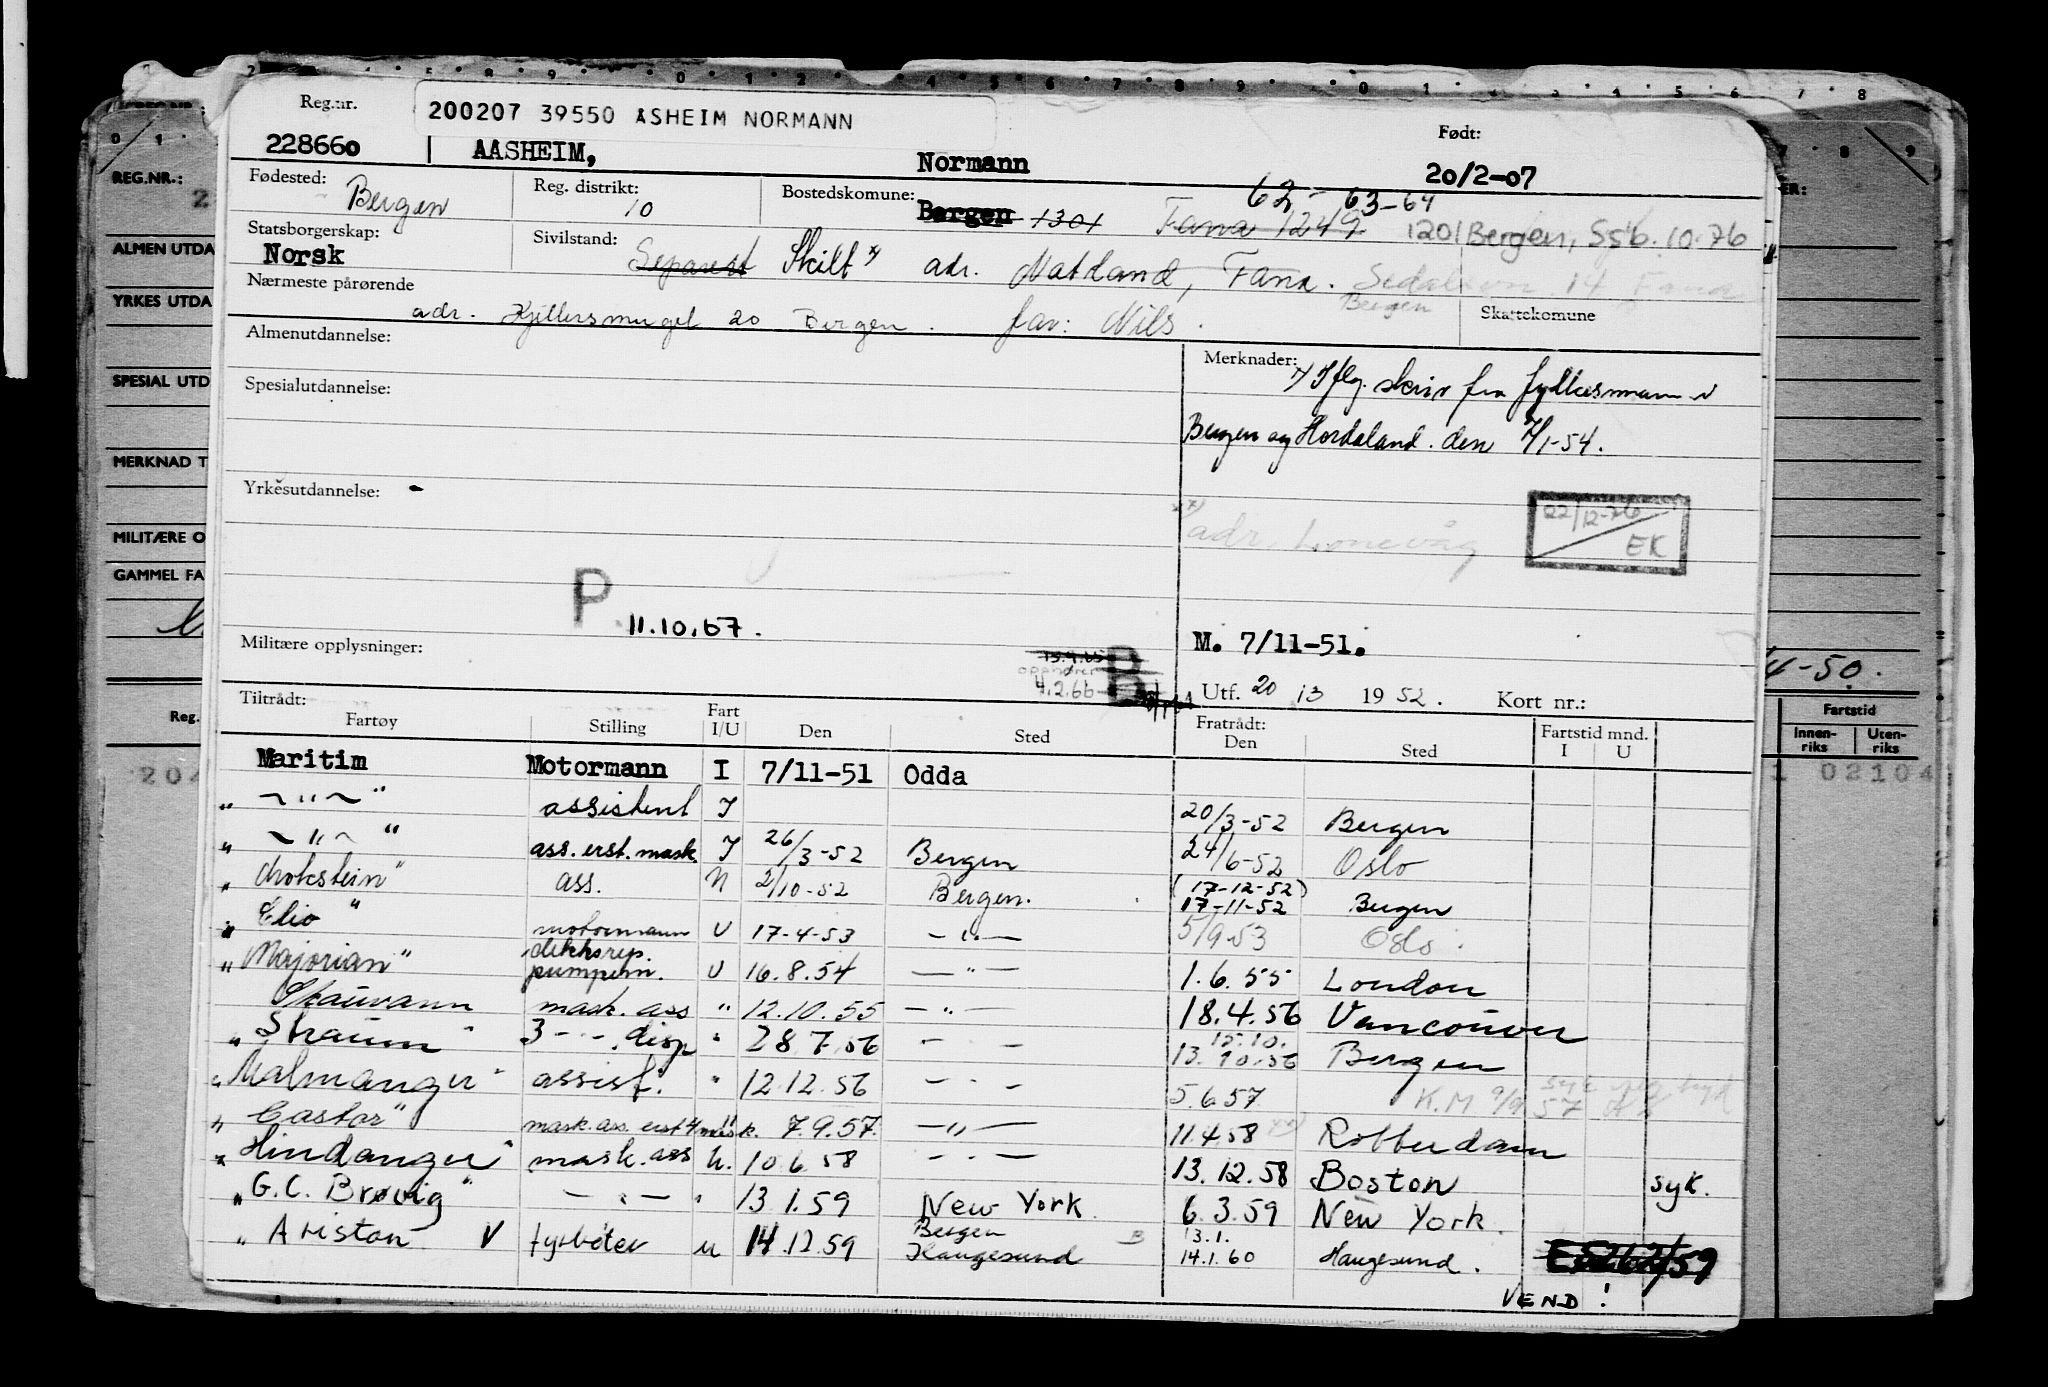 Reg.nr. 200207 39550 ASHEIM NORMANN Født:
228660 AASHEIM, Normann 20/2-07
Fødested: Bergen Reg. distrikt: 10 Bostedskomune: Bergen 1301 Fana 1249 62-63-64 1201 Bergen, Sjb. 10.76
Statsborgerskap: Norsk Sivilstand: Separert Skilt x) adr. Natland, Fana. 14 Fana
Nærmeste pårørende Bergen
adr. 20 Bergen. far: Nils. Skattekomune
Almenutdannelse: Merknader:
x) Iflg. skriv fra fylkesmann i
Spesialutdannelse:
Bergen og Hordaland. den 7/1-54.
Yrkesutdannelse: -
22/12-76 EK
xx) adr. Lonevåg
P 11.10.67.
Militære opplysninger: M. 7/11-51.
13.9.65
4.2.66 B
Utf. 20/3 1952. Kort nr.:
Tiltrådt: Fratrådt:
Fartøy Stilling Fart I/U Den Sted Den Sted Fartstid mnd. I U
Maritim Motormann I 7/11-51 Odda
" ~"~ " assistent I 20/3-52 Bergen
" ~"~ " ass. erst. mask. I 26/3-52 Bergen 24/6-52 Oslo
" Mokstein" ass. N 2/10-52 Bergen. (17-12-52) 17-11-52 Bergen
" Clio " motormann U 17-4-53 —"— 5/9-53 Oslo.
" Majorian" dekksrep. pumpem. U 16.8.54 —"— 1.6.55 London
Skauvann mask. ass " 12.10.55 —"— 18.4.56 Vancouver
" Straum " 3 - - . disp " 28 7.56 - " - 15.10. 13.10.56 Bergen
" Malmanger " assist. " 12.12.56 - " - 5.6.57 K.M 9/9 57
" Castor" mask. ass. erst 4 mask. " 7.9.57. —"— 11.4.58 xx) Rotterdam
" Hindanger " mask. ass u. 10.6.58 - " - 13.12.58 Boston syk.
" G.C. Brøvig" — " — " 13.1.59 New York 6.3.59 New York.
" Ariston V fyrbøter u 14.12.59 Bergen Haugesund 13.1. 14.1.60 Haugesund. E5262/59
VEND !
REG.NR.:
ALMEN UTDA
YRKES UTDA
SPESIAL UTD
MERKNAD T
MILITÆRE O
GAMMEL FA
Reg.
204
4-50.
Fartstid
Innen-riks Uten-riks
1 02104